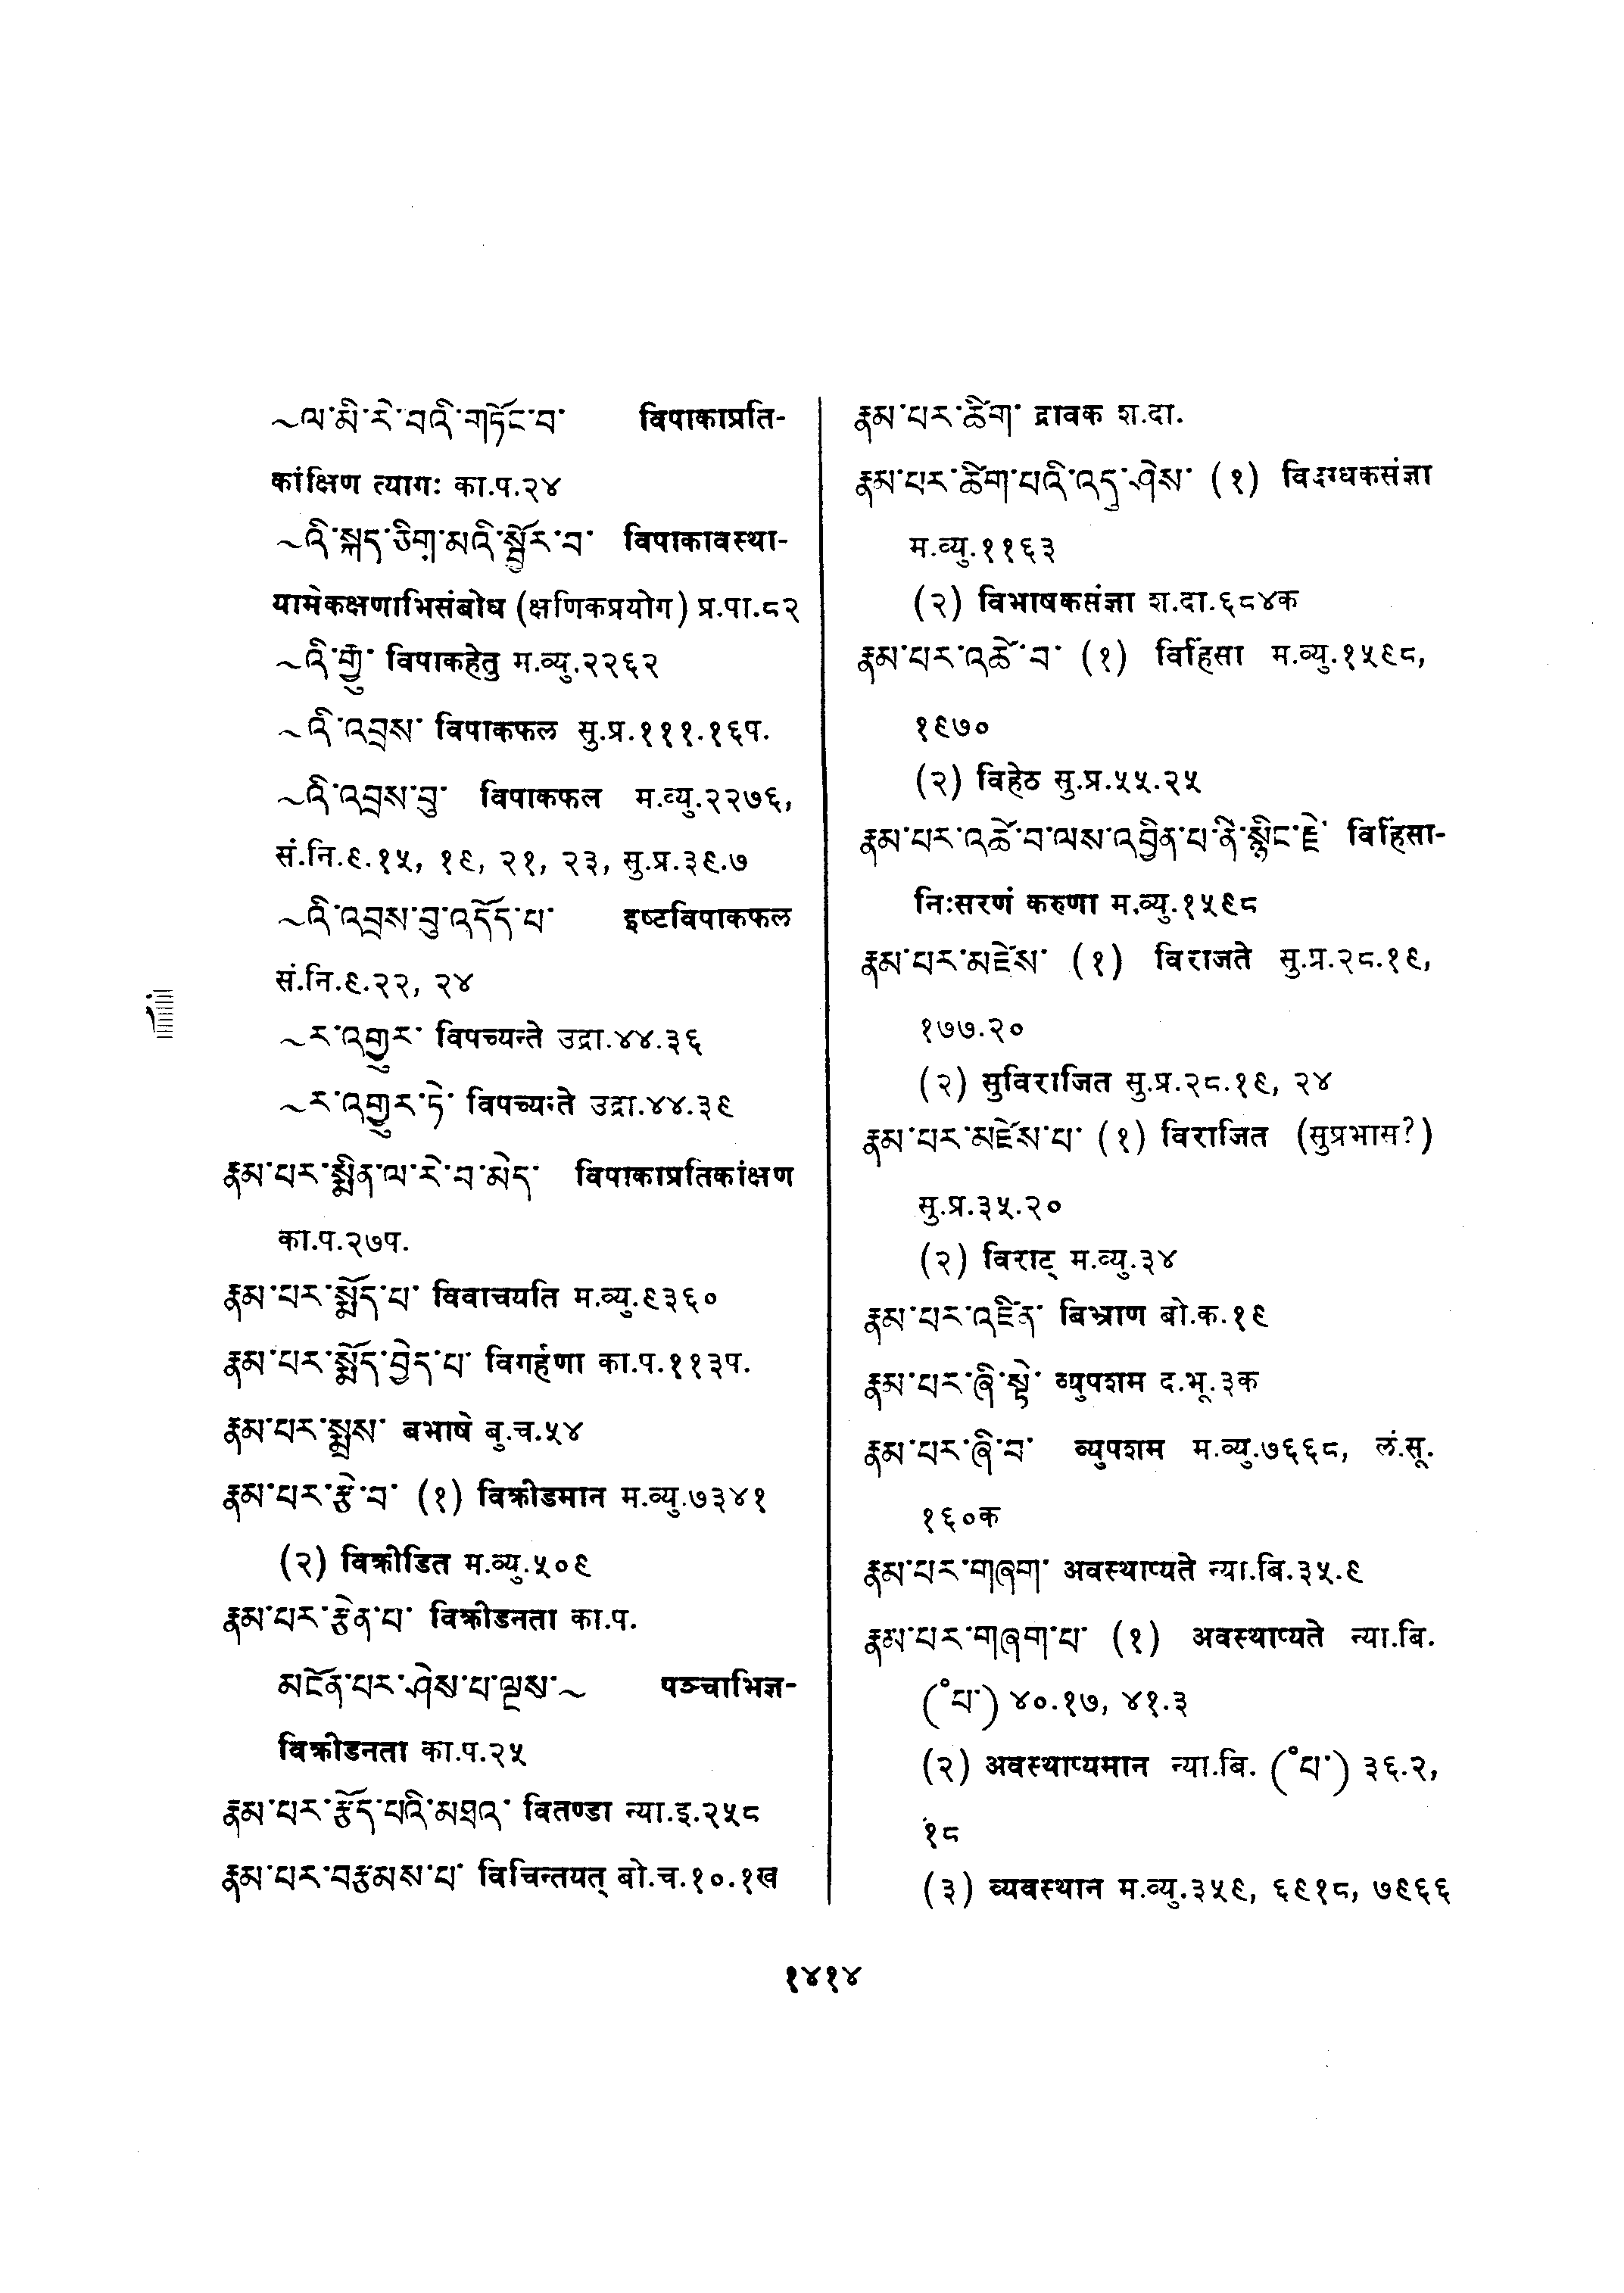 ~ལ་མི་རེ་བའི་གཏོང་བ་ विपाकाप्रति-
कांक्षिण त्यागः का.प.२४
~འི་སྐད་ཅིག་མའི་སྦྱོར་བ་ विपाकावस्था-
यामेकक्षणाभिसंबोध (क्षणिकप्रयोग) प्र.पा.८२
~འི་རྒྱུ་ विपाकहेतु म.व्यु.२२६२
~འི་འབྲས་ विपाकफल सु.प्र.१११.१६प.
~འི་འབྲས་བུ་ विपाकफल म.व्यु.२२७६,
सं.नि.९.१५, १९, २१, २३, सु.प्र.३९.७
~འི་འབྲས་བུ་འདོད་པ་ इष्टविपाकफल
सं.नि.९.२२, २४
~ར་འགྱུར་ विपच्यन्ते उद्रा.४४.३६
~ར་འགྱུར་ཏེ་ विपच्यन्ते उद्रा.४४.३९
རྣམ་པར་སྨིན་ལ་རེ་བ་མེད་ विपाकाप्रतिकांक्षण
का.प.२७प.
རྣམ་པར་སྨོད་པ་ विवाचयति म.व्यु.९३६०
རྣམ་པར་སྨོད་བྱེད་པ་ विगर्हणा का.प.११३प.
རྣམ་པར་སྨྲས་ बभाषे बु.च.५४
རྣམ་པར་རྩེ་བ་ (१) विक्रीडमान म.व्यु.७३४१
(२) विक्रीडित म.व्यु.५०९
རྣམ་པར་རྩེན་པ་ विक्रीडनता का.प.
མངོན་པར་ཤེས་པ་ལྔས་~ पञ्चाभिज्ञ-
विक्रीडनता का.प.२५
རྣམ་པར་རྩོད་པའི་མཐའ་ वितण्डा न्या.इ.२५८
རྣམ་པར་བརྩམས་པ་ विचिन्तयत् बो.च.१०.१ख
རྣམ་པར་ཚིག་ द्रावक श.दा.
རྣམ་པར་ཚིག་པའི་འདུ་ཤེས་ (१) विदग्धकसंज्ञा
म.व्यु.११६३
(२) विभाषकसंज्ञा श.दा.६८४क
རྣམ་པར་འཚེ་བ་ (१) विहिंसा म.व्यु.१५९८,
१९७०
(२) विहेठ सु.प्र.५५.२५
རྣམ་པར་འཚེ་བ་ལས་འབྱིན་པ་ནི་སྙིང་རྗེ་ विहिंसा-
निःसरणं करुणा म.व्यु.१५९८
རྣམ་པར་མཛེས་ (१) विराजते सु.प्र.२८.१९,
१७७.२०
(२) सुविराजित सु.प्र.२८.१९, २४
རྣམ་པར་མཛེས་པ་ (१) विराजित (सुप्रभास?)
सु.प्र.३५.२०
(२) विराट् म.व्यु.३४
རྣམ་པར་འཛིན་ बिभ्राण बो.क.१९
རྣམ་པར་ཞི་སྟེ་ व्युपशम द.भू.३क
རྣམ་པར་ཞི་བ་ व्युपशम म.व्यु.७६६८, लं.सू.
१६०क
རྣམ་པར་གཞག་ अवस्थाप्यते न्या.बि.३५.९
རྣམ་པར་གཞག་པ་ (१) अवस्थाप्यते न्या.बि.
(°པ་) ४०.१७, ४१.३
(२) अवस्थाप्यमान न्या.बि. (°པ་) ३६.२,
१८
(३) व्यवस्थान म.व्यु.३५९, ६९१८, ७९६६
१४१४